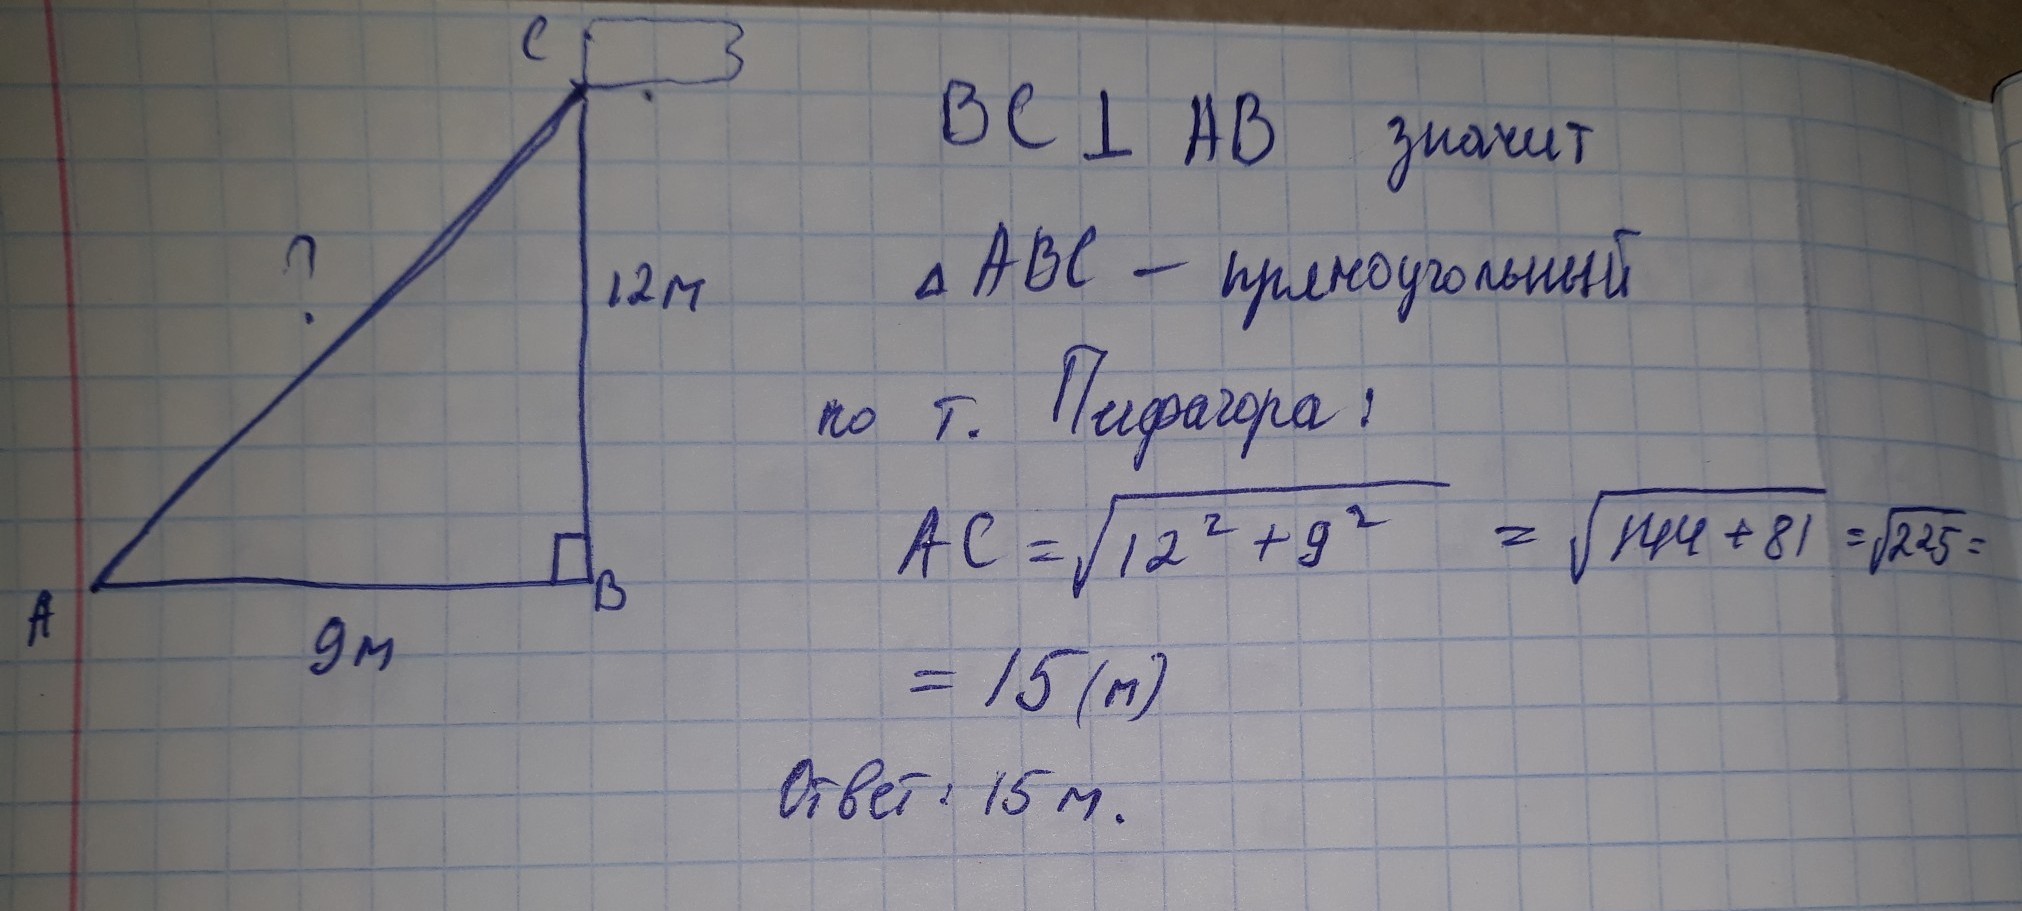 C
?
12м
A
B
9м
BC ⊥ AB значит
△ ABC – прямоугольный
по т. Пифагора:
AC = √12² + 9² = √144 + 81 = √225 =
= 15 (м)
Ответ: 15 м.